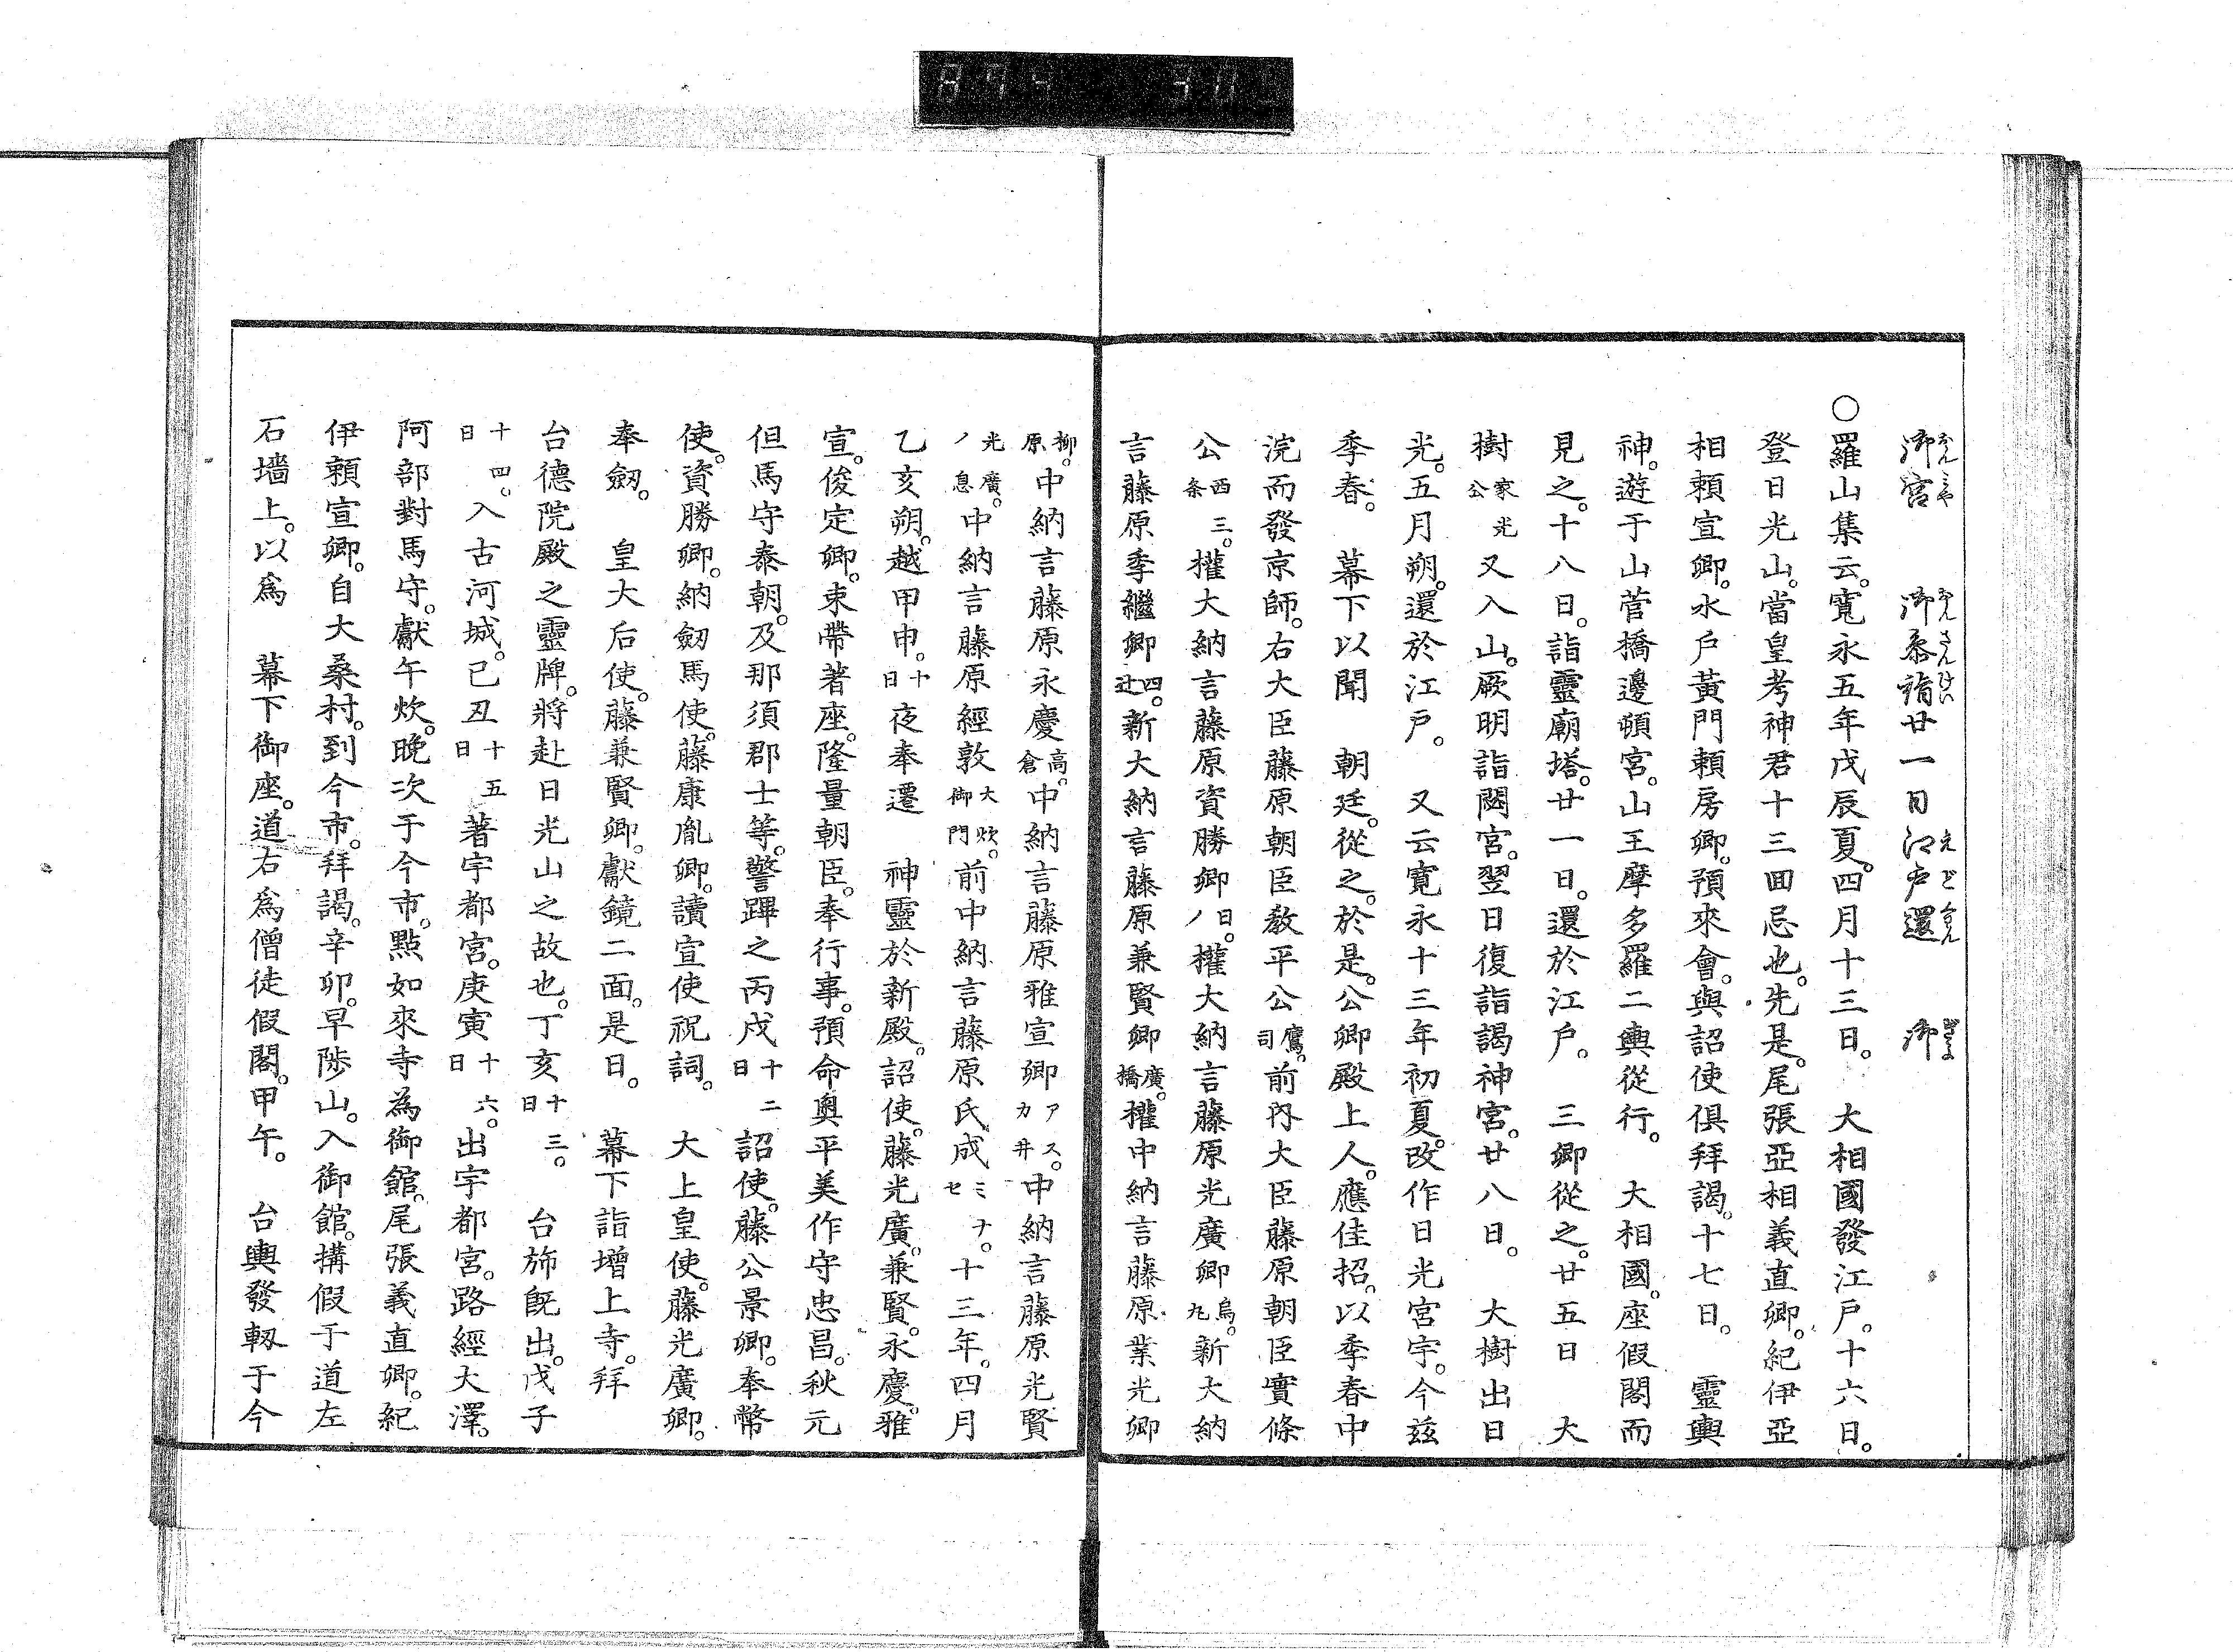 御宮 御參詣廿一日江戸還 御
○羅山集云。寛永五年戊辰夏。四月十三日。 大相國發江戸。十六日。
登日光山。當皇考神君十三回忌也。先是。尾張亞相義直卿。紀伊亞
相頼宣卿。水戸黄門頼房卿。預來會。與詔使倶拜謁。十七日。 靈輿
神。遊于山菅橋邊頓宮。山王摩多羅二輿從行。 大相國。座假閣而
見之。十八日。詣靈廟塔。廿一日。還於江戸。 三卿從之。廿五日 大
樹家光公又入山。厥明詣閟宮。翌日復詣謁神宮。廿八日。 大樹出日
光。五月朔。還於江戸。 又云寛永十三年初夏。改作日光宮宇。今茲
季春。 幕下以聞 朝廷。從之。於是。公卿殿上人。應佳招。以季春中
浣而發京師。右大臣藤原朝臣教平公鷹司。前内大臣藤原朝臣實條
公西三条。權大納言藤原資勝卿日ノ。權大納言藤原光廣卿烏丸。新大納
言藤原季繼卿四辻。新大納言藤原兼賢卿廣橋。權中納言藤原業光卿
柳原。中納言藤原永慶高倉。中納言藤原雅宣卿アスカ井。中納言藤原光賢
光廣ノ息。中納言藤原經敦大炊御門。前中納言藤原氏成ミナセ。十三年。四月
乙亥朔。越甲申。十日夜奉遷 神靈於新殿。詔使。藤光廣。兼賢。永慶。雅
宣。俊定卿。束帶著座。隆量朝臣。奉行事。預命奥平美作守忠昌。秋元
但馬守泰朝。及那須郡士等。警蹕之丙戌十二日詔使。藤公景卿。奉幣
使。資勝卿。納釼馬使。藤康胤卿。讀宣使祝詞。 大上皇使。藤光廣卿。
奉釼。 皇大后使。藤兼賢卿。獻鏡二面。是日。 幕下詣增上寺。拜
台德院殿之靈牌。將赴日光山之故也。丁亥十三日。 台斾既出。戊子
十四日。入古河城。己丑十五日著宇都宮。庚寅十六日。出宇都宮。路經大澤。
阿部對馬守。獻午炊。晩次于今市。點如來寺為御館。尾張義直卿。紀
伊頼宣卿。自大桑村。到今市。拜謁。辛卯。早陟山。入御館。搆假于道左
石墻上。以爲 幕下御座。道右爲僧徒假閣。甲午。 台輿發軔于今